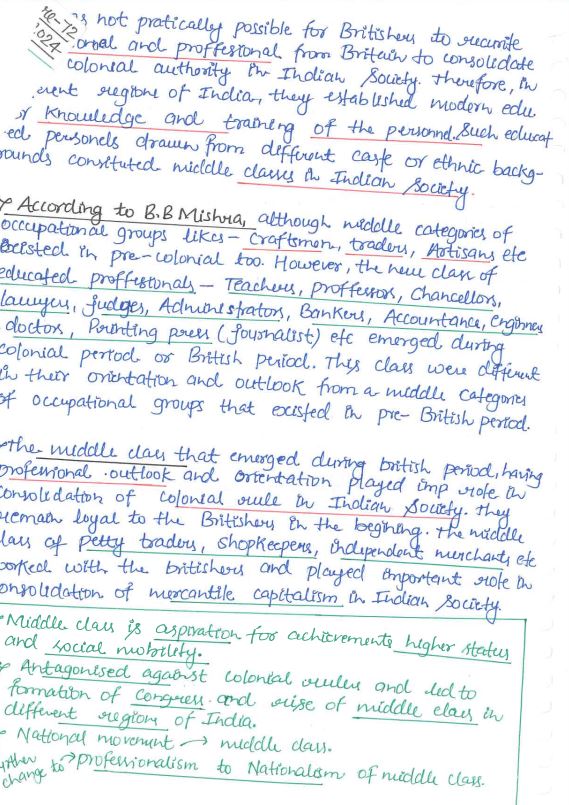 is not pratically possible for Britishers to recurite
ional and proffesional from Britain to consolidate
colonial authority in Indian Society. Therefore, in
erent regions of India, they established modern edu
or Knowledge and training of the personnel. Such educat
ed personels drawn from different caste or ethnic backg-
rounds constituted middle classes in Indian Society.
According to B.B Mishra, although middle categories of
occupational groups likes - Craftsmen, traders, Artisans etc
Existed in pre-colonial too. However, the new class of
educated proffestonals - Teachers, proffessors, Chancellors,
lawyers, judges, Administrators, Bankers, Accountance, Engineers
doctors, Printing press (Journalist) etc emerged during
colonial period or British period. This class were different
in their orientation and outlook from a middle categories
of occupational groups that existed in pre- British period.
The middle class that emerged during british period, having
professional outlook and orientation played imp role in
consolidation of colonial rule in Indian Society. They
remain loyal to the Britishers in the begining. The middle
class of petty traders, shopkeepers, independent merchants etc
worked with the britishers and played important role in
onsolidation of mercantile capitalism in Indian Society.
Middle class is aspiration for achievements higher status
and social mobility.
Antagonised against colonial rulers and led to
formation of Congress and rise of middle class in
different regions of India.
National movement → middle class.
change to → professionalism to Nationalism of middle class.